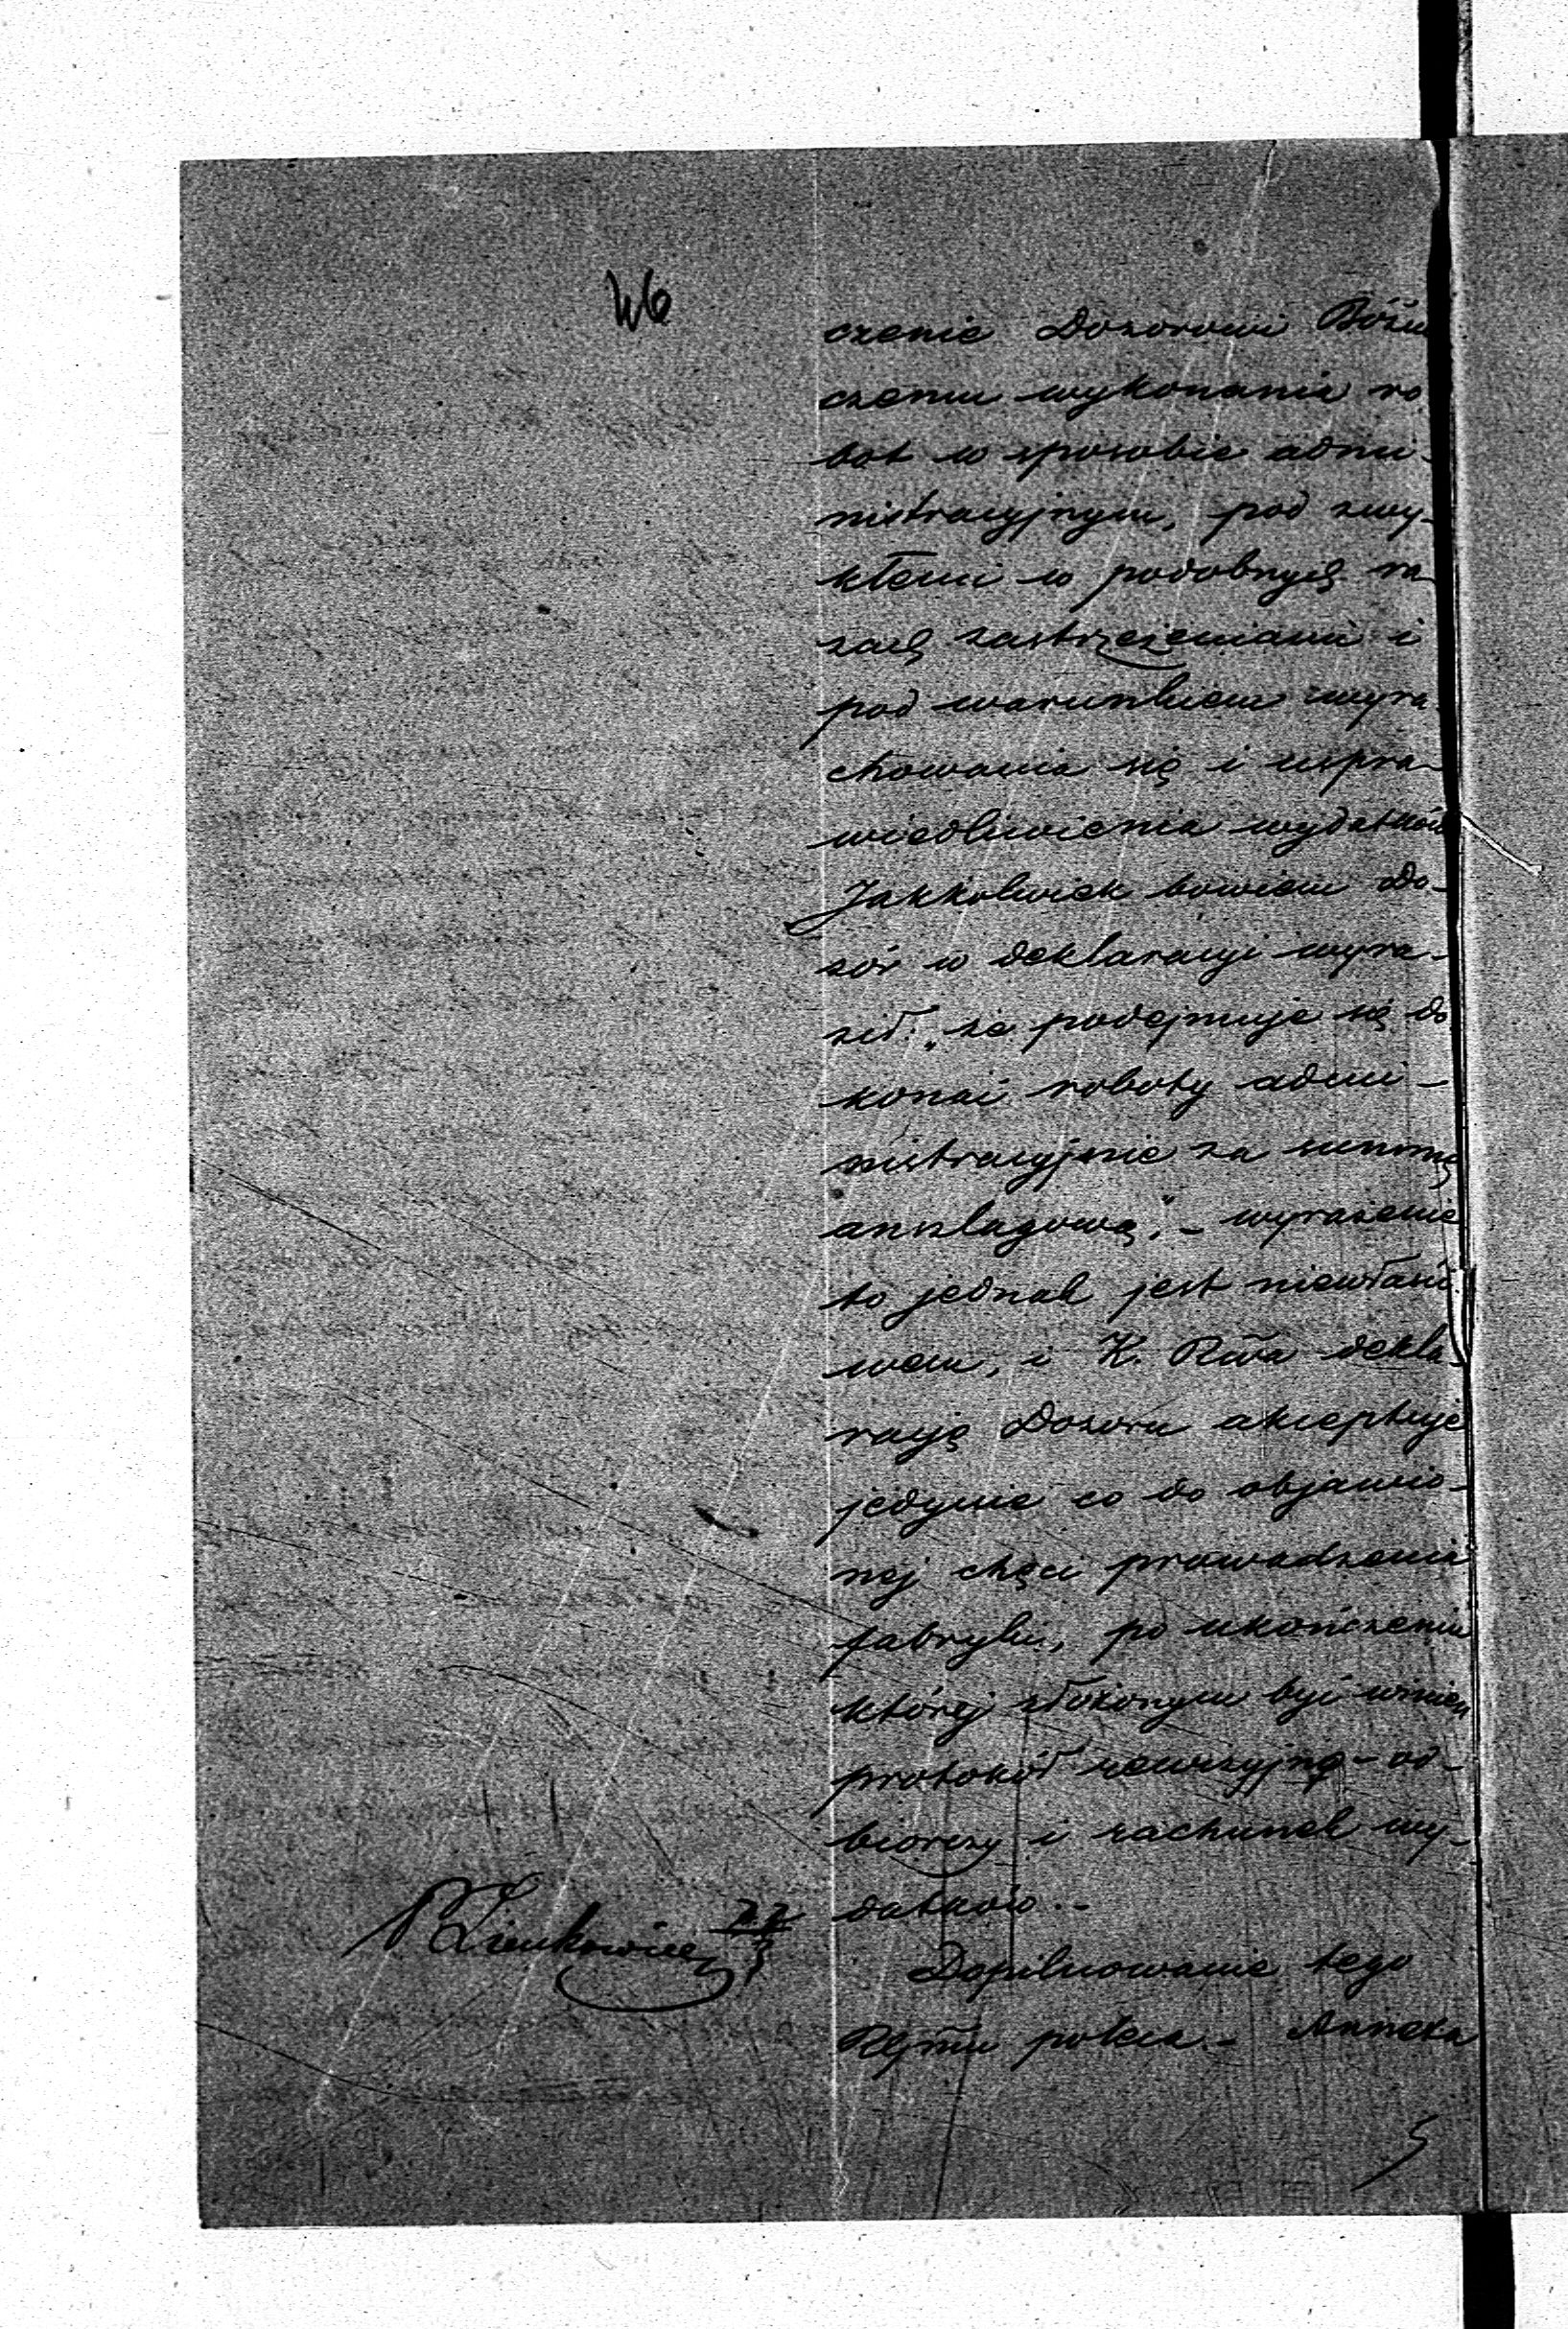 46
czenie Dozorowi Bóżni
czemu wykonania ro
bot w sposobie admi-
nistracyjnym, pod zwy-
kłemi w podobnych ra
zach zastrzeżeniami i
pod warunkiem wyra
chowania się i uspra-
wiedliwienia wydatków
Jakkolwiek bowiem Do-
zór w deklaracyi wyra-
ził: „że podejmuje się do
konać roboty admi-
nistracyjnie za summę
anszlagową", - wyrażenie
to jednak jest niewłaści
wem, i K. Rwa dekla-
racyę Dozoru akceptuje
jedynie co do objawio-
nej chęci prowadzenia
fabryki, po ukończeniu
której złożonym być winien
protokół rewizyjno-od-
biorczy i rachunek wy-
datków.-
Dopilnowanie tego
poleca.- Annexa
5